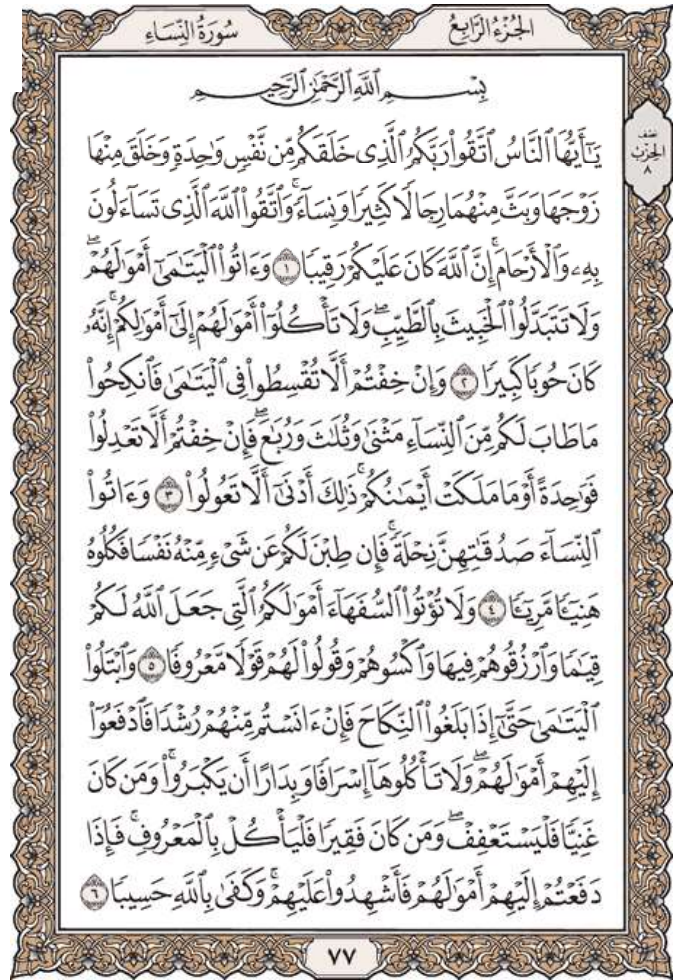 سُورَةُ النِّسَاءِ
الجُزْءُ الرَّابِعُ
بِسْمِ ٱللَّهِ ٱلرَّحْمَٰنِ ٱلرَّحِيمِ
نصف
الحزب
٨
يَٰٓأَيُّهَا ٱلنَّاسُ ٱتَّقُوا۟ رَبَّكُمُ ٱلَّذِى خَلَقَكُم مِّن نَّفْسٍ وَٰحِدَةٍ وَخَلَقَ مِنْهَا
زَوْجَهَا وَبَثَّ مِنْهُمَا رِجَالًا كَثِيرًا وَنِسَآءً ۚ وَٱتَّقُوا۟ ٱللَّهَ ٱلَّذِى تَسَآءَلُونَ
بِهِۦ وَٱلْأَرْحَامَ ۚ إِنَّ ٱللَّهَ كَانَ عَلَيْكُمْ رَقِيبًا ١ وَءَاتُوا۟ ٱلْيَتَٰمَىٰٓ أَمْوَٰلَهُمْ ۖ
وَلَا تَتَبَدَّلُوا۟ ٱلْخَبِيثَ بِٱلطَّيِّبِ ۖ وَلَا تَأْكُلُوٓا۟ أَمْوَٰلَهُمْ إِلَىٰٓ أَمْوَٰلِكُمْ ۚ إِنَّهُۥ
كَانَ حُوبًا كَبِيرًا ٢ وَإِنْ خِفْتُمْ أَلَّا تُقْسِطُوا۟ فِى ٱلْيَتَٰمَىٰ فَٱنكِحُوا۟
مَا طَابَ لَكُم مِّنَ ٱلنِّسَآءِ مَثْنَىٰ وَثُلَٰثَ وَرُبَٰعَ ۖ فَإِنْ خِفْتُمْ أَلَّا تَعْدِلُوا۟
فَوَٰحِدَةً أَوْ مَا مَلَكَتْ أَيْمَٰنُكُمْ ۚ ذَٰلِكَ أَدْنَىٰٓ أَلَّا تَعُولُوا۟ ٣ وَءَاتُوا۟
ٱلنِّسَآءَ صَدُقَٰتِهِنَّ نِحْلَةً ۚ فَإِن طِبْنَ لَكُمْ عَن شَىْءٍ مِّنْهُ نَفْسًا فَكُلُوهُ
هَنِيٓـًٔا مَّرِيٓـًٔا ٤ وَلَا تُؤْتُوا۟ ٱلسُّفَهَآءَ أَمْوَٰلَكُمُ ٱلَّتِى جَعَلَ ٱللَّهُ لَكُمْ
قِيَٰمًا وَٱرْزُقُوهُمْ فِيهَا وَٱكْسُوهُمْ وَقُولُوا۟ لَهُمْ قَوْلًا مَّعْرُوفًا ٥ وَٱبْتَلُوا۟
ٱلْيَتَٰمَىٰ حَتَّىٰٓ إِذَا بَلَغُوا۟ ٱلنِّكَاحَ فَإِنْ ءَانَسْتُم مِّنْهُمْ رُشْدًا فَٱدْفَعُوٓا۟
إِلَيْهِمْ أَمْوَٰلَهُمْ ۖ وَلَا تَأْكُلُوهَآ إِسْرَافًا وَبِدَارًا أَن يَكْبَرُوا۟ ۚ وَمَن كَانَ
غَنِيًّا فَلْيَسْتَعْفِفْ ۖ وَمَن كَانَ فَقِيرًا فَلْيَأْكُلْ بِٱلْمَعْرُوفِ ۚ فَإِذَا
دَفَعْتُمْ إِلَيْهِمْ أَمْوَٰلَهُمْ فَأَشْهِدُوا۟ عَلَيْهِمْ ۚ وَكَفَىٰ بِٱللَّهِ حَسِيبًا ٦
٧٧